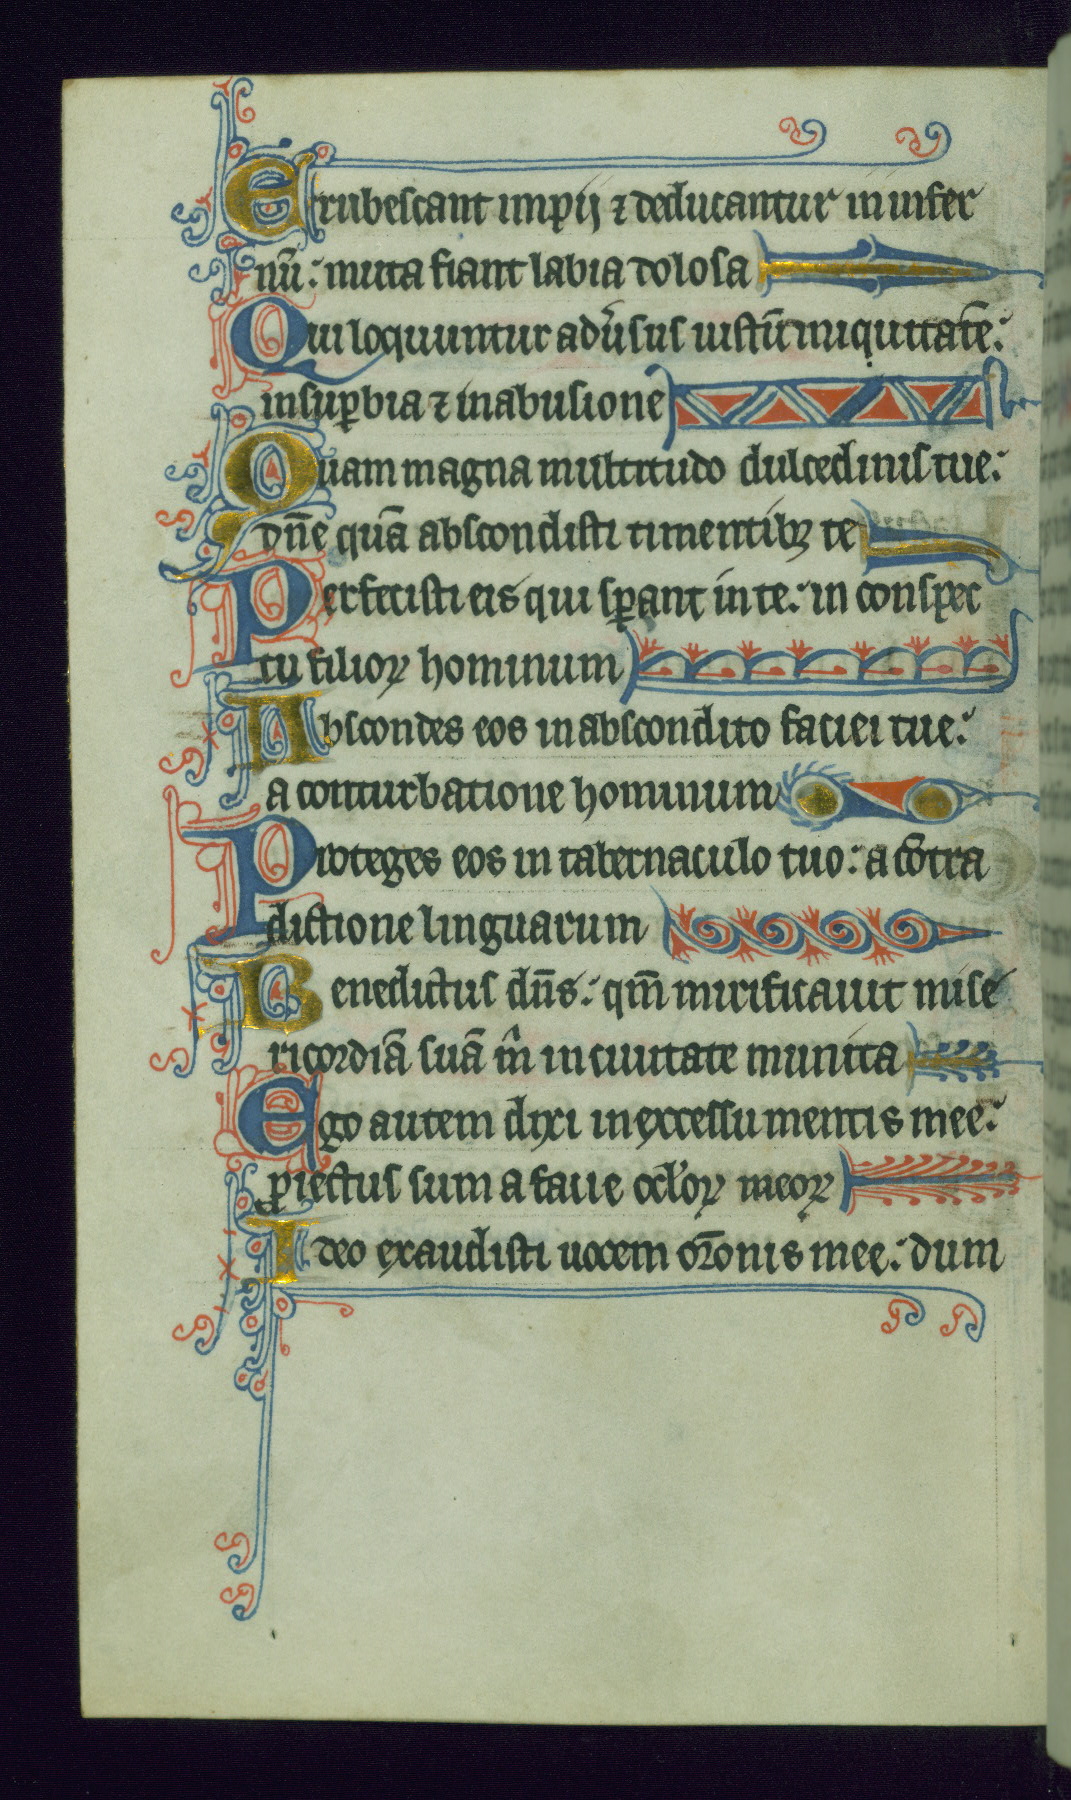 Erubescant impij ⁊ deducantur in infer
nū: muta fiant labia dolosa
Qui loquuntur adu̾sus iustū iniquitatē:
in suꝑbia ⁊ in abusione
Quam magna multitudo dulcedinis tue:
dn̄e quā abscondisti timentibꝫ te
Perfecisti eis qui sꝑant in te: in conspec
tu filioꝝ hominum
Abscondes eos in abscondito faciei tue:
a conturbatione hominum
Proteges eos in tabernaculo tuo: a cōtra
dictione linguarum
Benedictus dn̄s: qm̄ mirificauit mise
ricordiā suā m̂ in ciuitate munita
Ego autem dixi in excessu mentis mee:
ꝓiectus sum a facie ocl̓oꝝ meoꝝ
Ideo exaudisti uocem or̄onis mee: dum